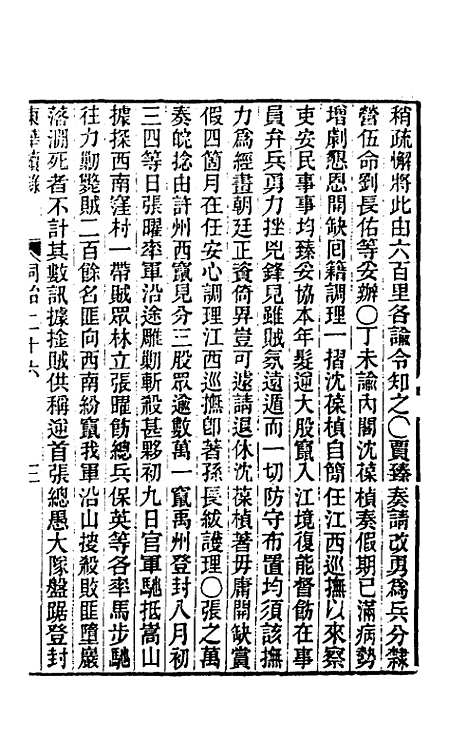 稍疏懈將此由六百里各諭令知之〇賈臻奏請改勇爲兵分隸
營伍命劉長佑等妥辦〇丁未諭內閣沈葆楨奏假期已滿病勢
增劇懇恩開缺回籍調理一摺沈葆楨自簡任江西巡撫以來察
吏安民事事均臻妥協本年髮逆大股竄入江境復能督飭在事
員弁兵勇力挫兇鋒見雖賊氛漸遁而一切防守布置均須該撫
力爲經畫朝廷正資倚畀豈可遽請退休沈葆楨著毋庸開缺賞
假四箇月在任安心調理江西巡撫卽著孫長紱護理〇張之萬
奏皖捻由許州西竄見分三股眾逾數萬一竄禹州登封八月初
三四等日張曜率軍沿途雕勦斬殺甚夥初九日官軍馳抵嵩山
據探西南窪村一帶賊眾林立張曜飭總兵保英等各率馬步馳
往力勦斃賊二百餘名匪向西南紛竄我軍沿山搜殺敗匪墮巖
落澗死者不計其數訊據捦賊供稱逆首張總愚大隊盤踞登封
東華續錄 同治二十六 三